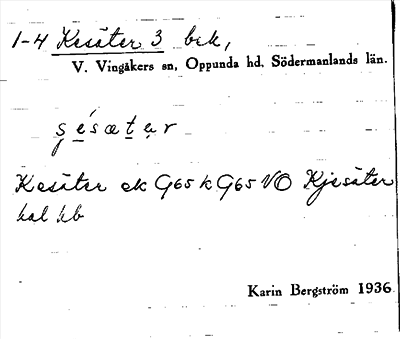 1-4 Kesäter 3 bek,
V. Vingåkers sn, Oppunda hd. Södermanlands län.
ʂésætər
Kesäter ek G65 k G65 VO Kjesäter
hal hb
Karin Bergström 1936